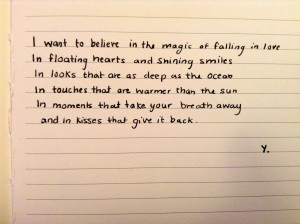 I want to believe in the magic of falling in love
In floating hearts and shining smiles
In looks that are as deep as the ocean
In touches that are warmer than the sun
In moments that take your breath away
and in kisses that give it back.
Y.